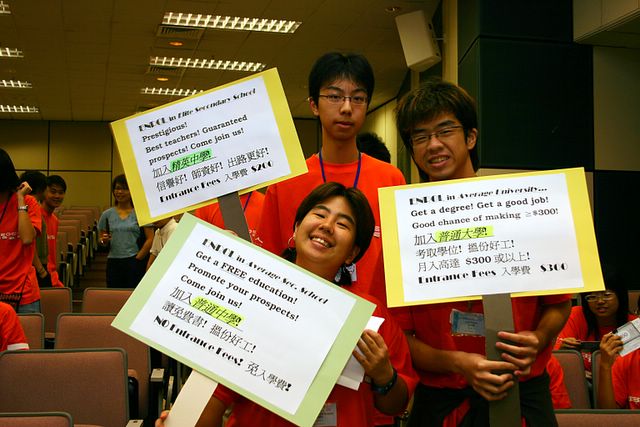 ENROL in Elite Secondary School
Prestigious!
Best teachers! Guaranteed
prospects! Come join us!
加入精英中學!
信譽好! 師資好! 出路更好!
Entrance Fees 入學費 $200
ENROL in Average Sec. School
Get a FREE education!
Promote your prospects!
Come join us!
加入普通中學!
讀免費書! 搵份好工!
NO Entrance Fees! 免入學費!
ENROL in Average University...
Get a degree! Get a good job!
Good chance of making ≥$300!
加入普通大學!
考取學位! 搵份好工!
月入高達 $300 或以上!
Entrance Fees 入學費 $300